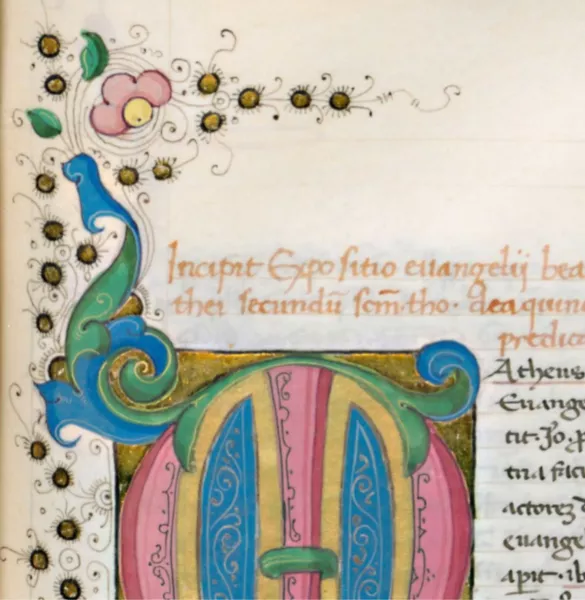 Incipit Expositio euangelij bea
thei secundū scm̄·tho· de aquin
predica
M
Atheus
Euange
tit·Jo·
tra
actorez
euange
apit·ib